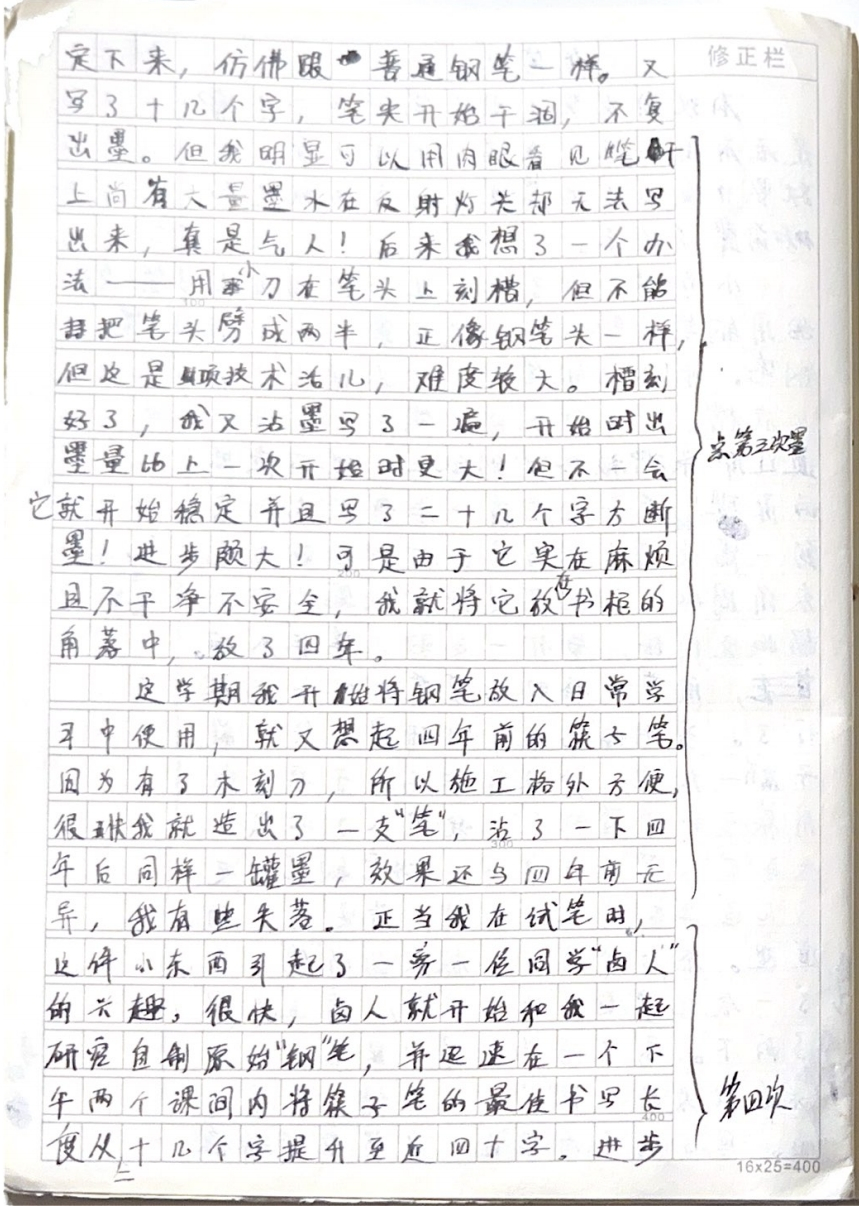 修正栏
定下来，仿佛跟普通钢笔一样。又
写了十几个字，笔尖开始干涸，不复
出墨。但我明显可以用肉眼看见笔杆
上尚有大量墨水在反射灯光却无法写
出来，真是气人！后来我想了一个办
法——用小刀在笔头上刻槽，但不能
把笔头劈成两半，正像钢笔头一样，
但这是项技术活儿，难度较大。槽刻
好了，我又沾墨写了一遍，开始时出
墨量比上一次开始时更大！但不一会
它就开始稳定并且写了二十几个字方断
墨！进步颇大！可是由于它实在麻烦
且不干净不安全，我就将它放在书柜的
角落中，放了四年。
这学期我开始将钢笔放入日常学
习中使用，就又想起四年前的筷子笔。
因为有了木刻刀，所以施工格外方便，
很快我就造出了一支“笔”，沾了一下四
年后同样一罐墨，效果还与四年前无
异，我有些失落。正当我在试笔时，
这件小东西引起了一旁一位同学“卤人”
的兴趣。很快，卤人就开始和我一起
研究自制原始“钢”笔，并迅速在一个下
午两个课间内将筷子笔的最佳书写长
度从二十几个字提升至近四十字。进步
点第三次墨
第四次
100
200
300
400
16x25=400